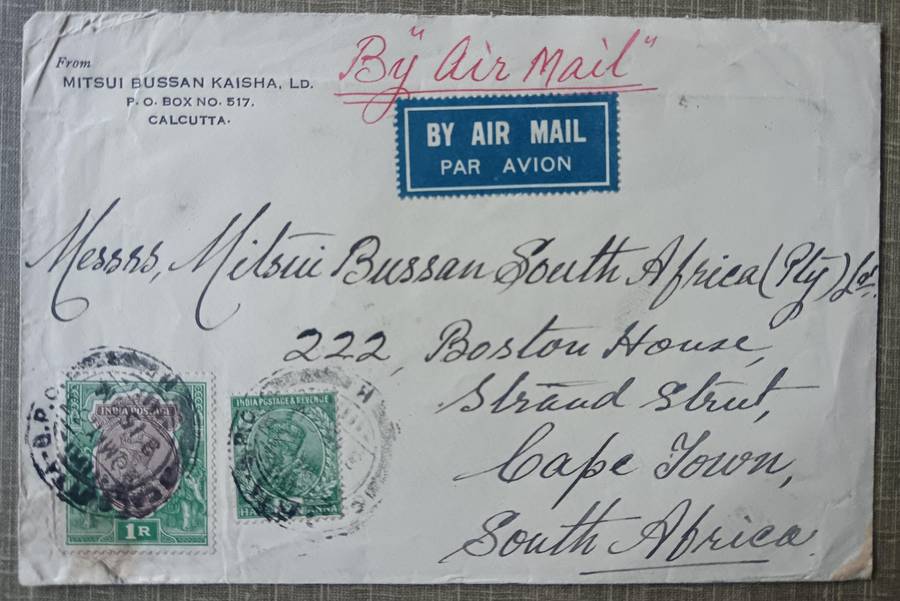 From
MITSUI BUSSAN KAISHA, LD.
P. O. BOX NO. 517.
CALCUTTA.
By "Air Mail"
BY AIR MAIL
PAR AVION
Messrs, Mitsui Bussan South Africa (Pty) Ld.
222, Boston House,
Strand Street,
Cape Town,
South Africa.
INDIA POSTAGE
1R
INDIA POSTAGE & REVENUE